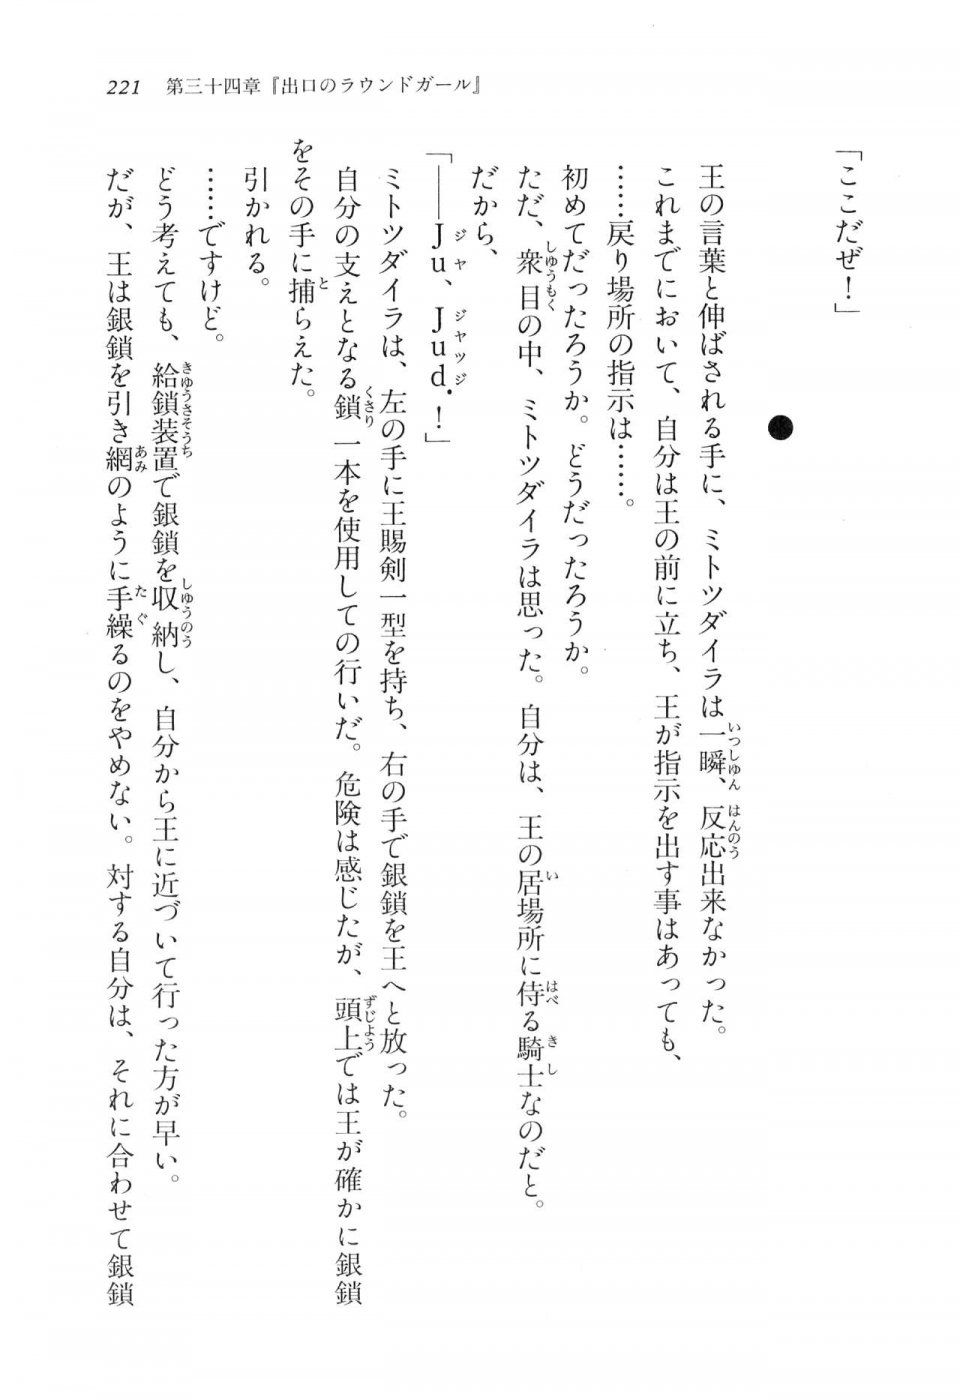 221　第三十四章『出口のラウンドガール』
「ここだぜ！」
●
王の言葉と伸ばされる手に、ミトツダイラは一瞬、反応出来なかった。
これまでにおいて、自分は王の前に立ち、王が指示を出す事はあっても、
……戻り場所の指示は……。
初めてだったろうか。どうだったろうか。
ただ、衆目の中、ミトツダイラは思った。自分は、王の居場所に侍る騎士なのだと。
だから、
「――Ｊｕ、Ｊｕｄ．！」
ミトツダイラは、左の手に王賜剣一型を持ち、右の手で銀鎖を王へと放った。
自分の支えとなる鎖一本を使用しての行いだ。危険は感じたが、頭上では王が確かに銀鎖
をその手に捕らえた。
引かれる。
……ですけど。
どう考えても、給鎖装置で銀鎖を収納し、自分から王に近づいて行った方が早い。
だが、王は銀鎖を引き網のように手繰るのをやめない。対する自分は、それに合わせて銀鎖